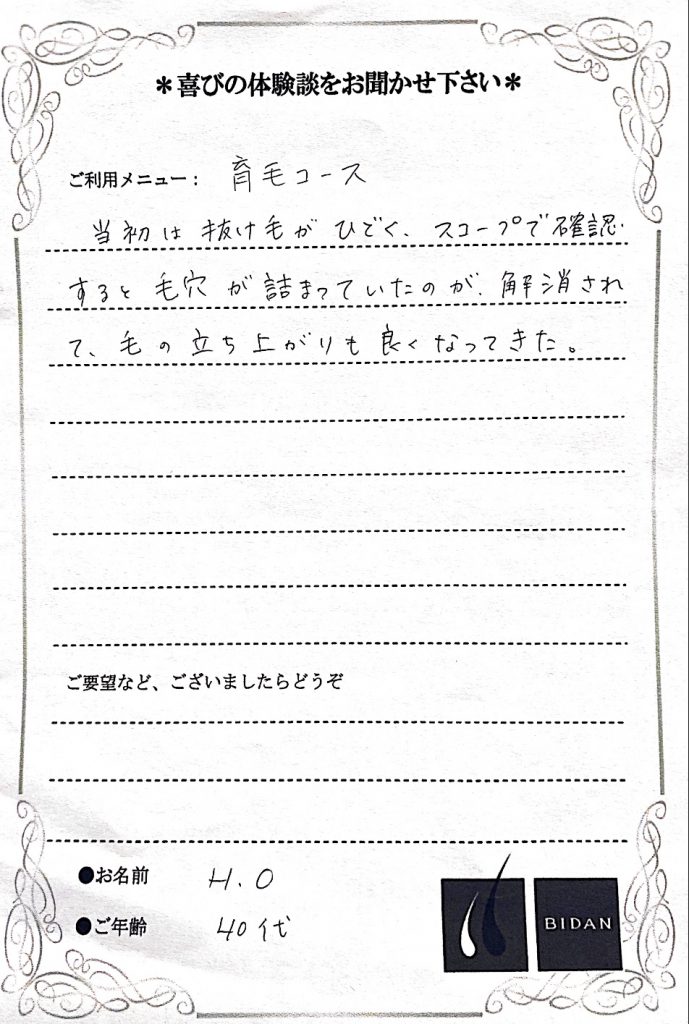 ＊喜びの体験談をお聞かせ下さい＊
ご利用メニュー： 育毛コース
当初は抜け毛がひどく、スコープで確認
すると毛穴が詰まっていたのが、解消され
て、毛の立ち上がりも良くなってきた。
ご要望など、ございましたらどうぞ
●お名前 H.O
●ご年齢 40代
BIDAN